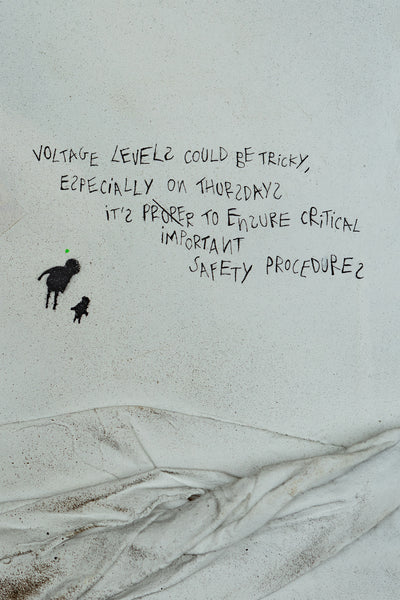 VOLTAGE LEVELS COULD BE TRICKY,
ESPECIALLY ON THURSDAYS
IT'S PROPER TO ENSURE CRITICAL
IMPORTANT
SAFETY PROCEDURES